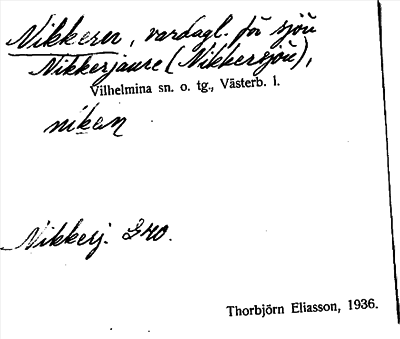 Nikkern, vardagl. för sjön
Nikkerjaure (Nikkersjön),
Vilhelmina sn. o. tg., Västerb. l.
niken
Nikkerj. GKO.
Thorbjörn Eliasson, 1936.